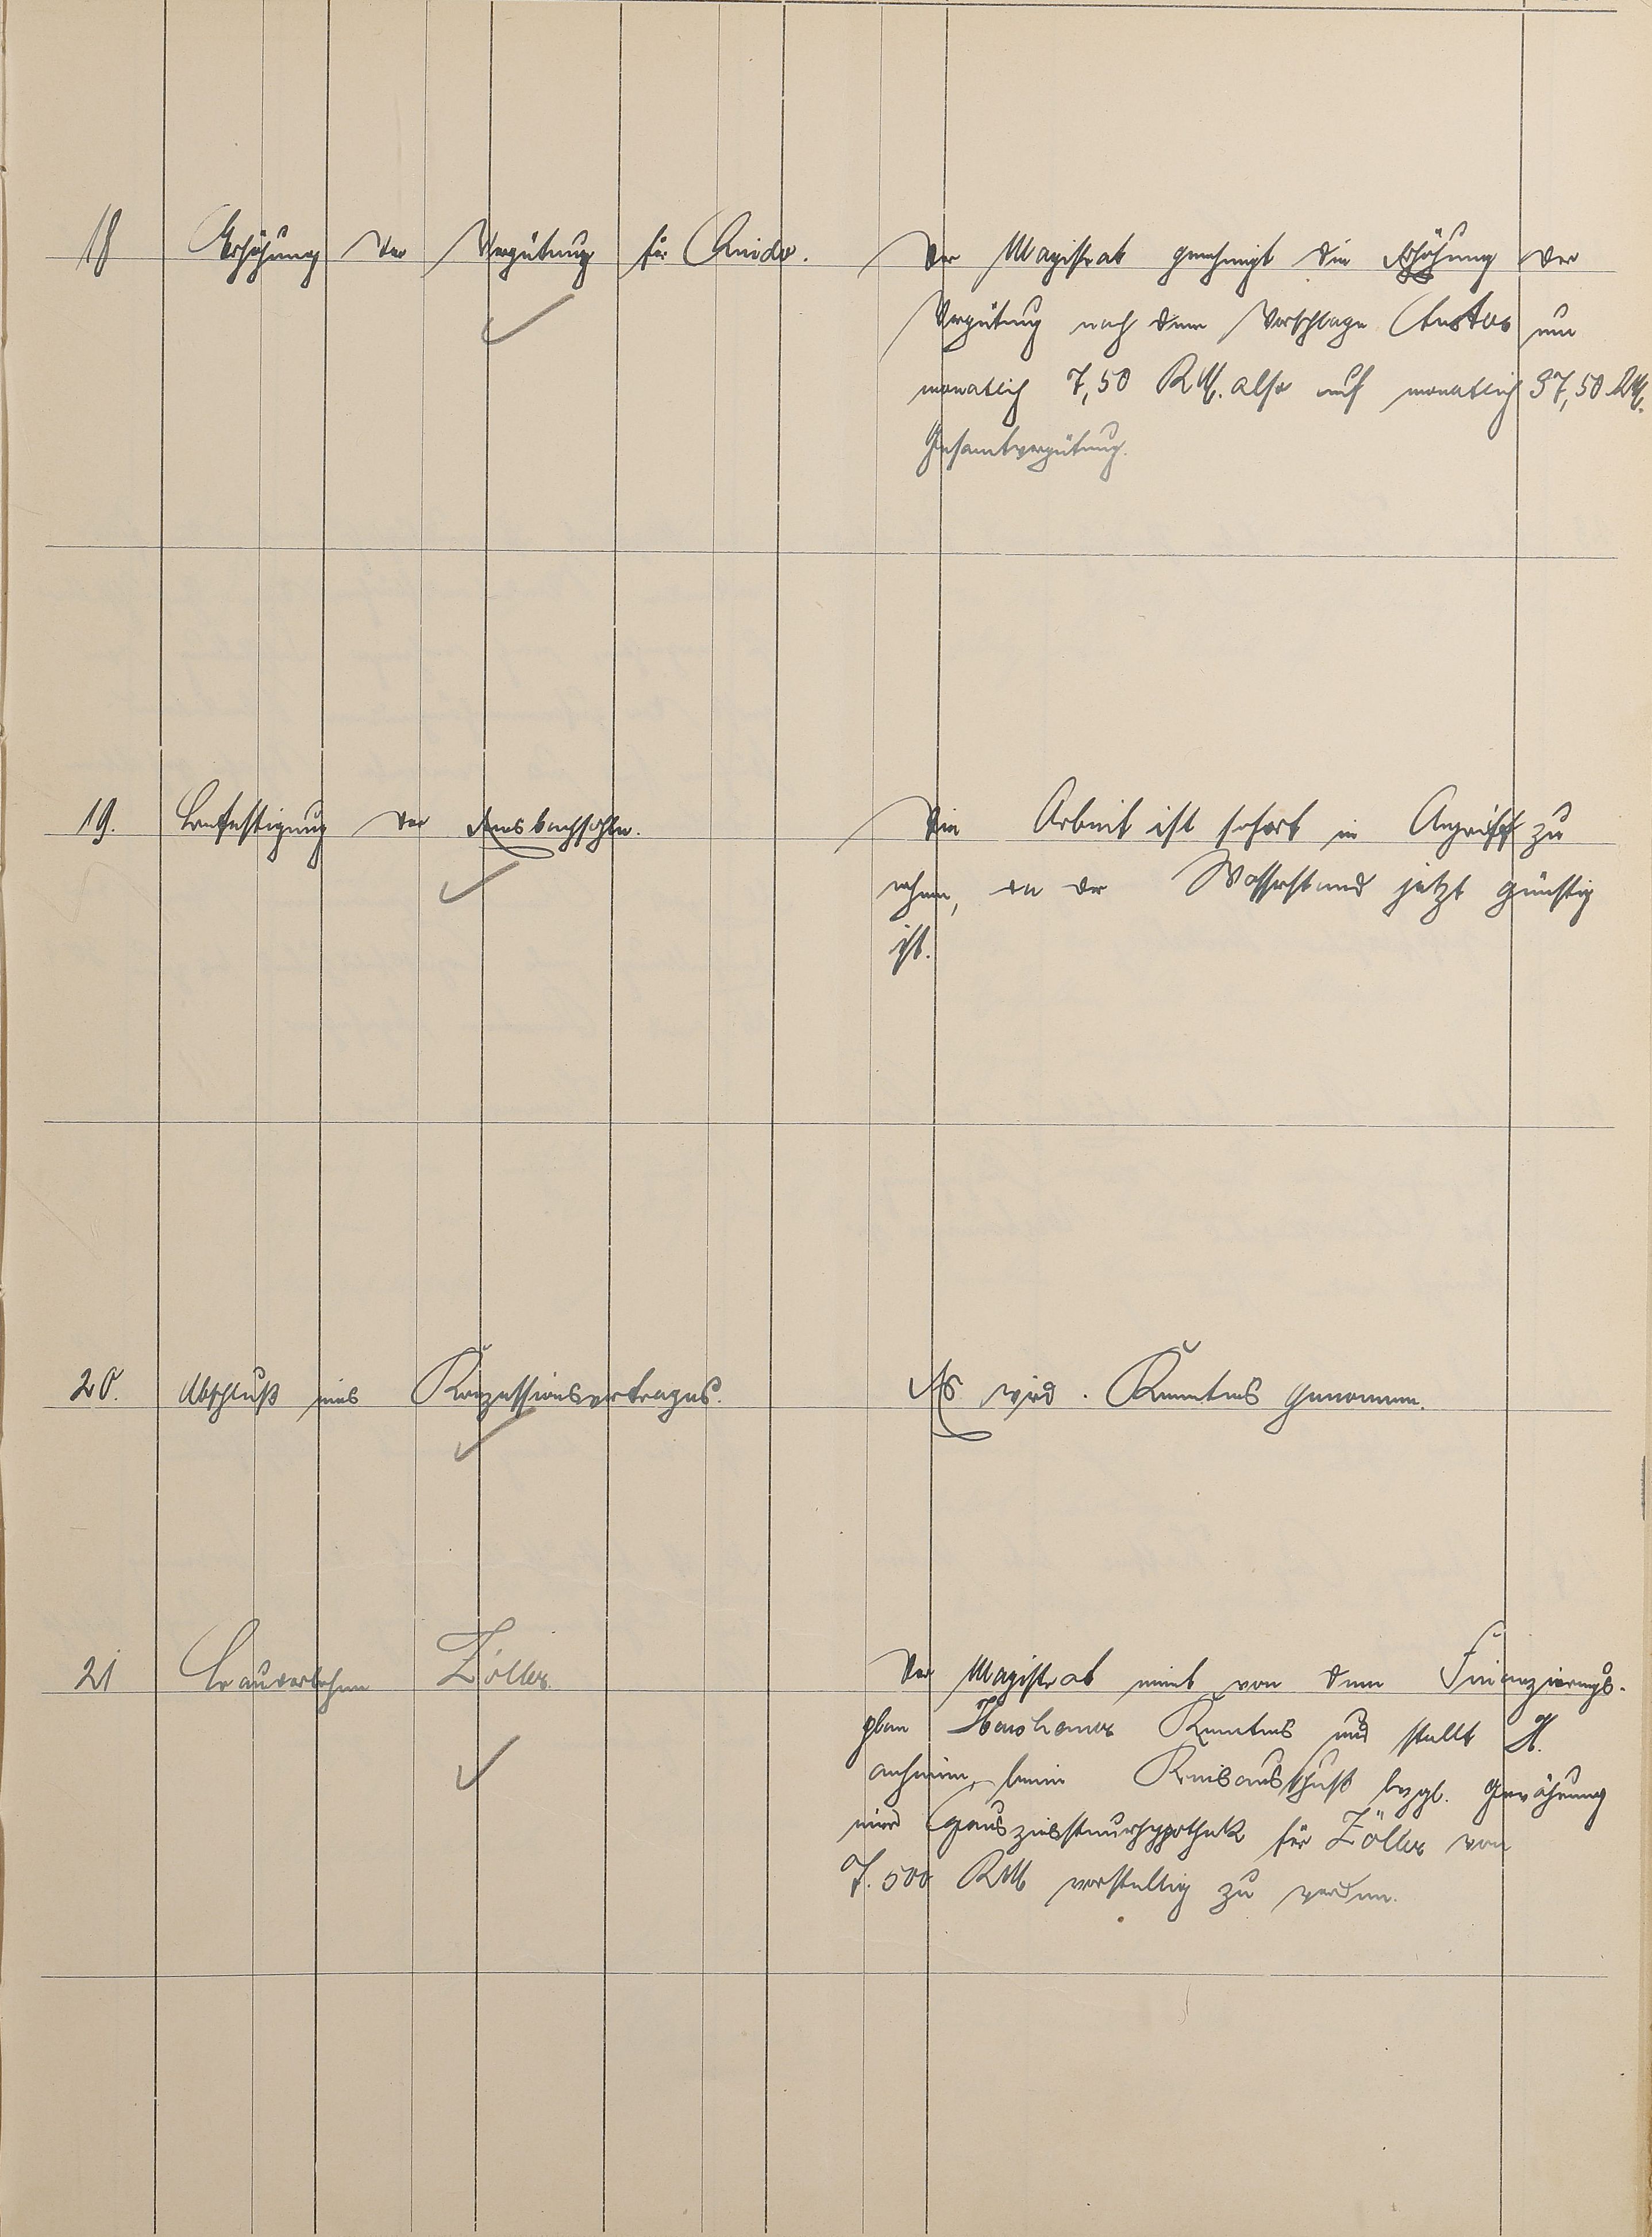 18 Erhöhung der Vergütung für Quido.
Der Magistrat genehmigt die Erhöhung der
Vergütung nach dem Vorschlage um
monatlich 7,50 RM. also auf monatlich 37,50 RM.
Gesamtvergütung.
19. Befestigung der Emsbachsohle.
Die Arbeit ist sofort in Angriff zu
nehmen, da der Wasserstand jetzt günstig
ist.
20. Abschluß eines Konzessionsvertrages.
Es wird Kenntnis genommen.
21 Baudarlehen Zöller.
Der Magistrat nimt von dem Finanzierungs-
plan Kenntnis und stellt H.
anheim, beim Kreisausschuß bezgl. Gewährung
einer Hauszinssteuerhypothek für Zöller von
7.500 RM vorstellig zu werden.